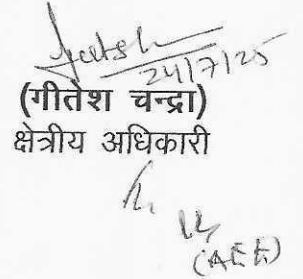 24/7/25
(गीतेश चन्द्रा)
क्षेत्रीय अधिकारी
(AEE)